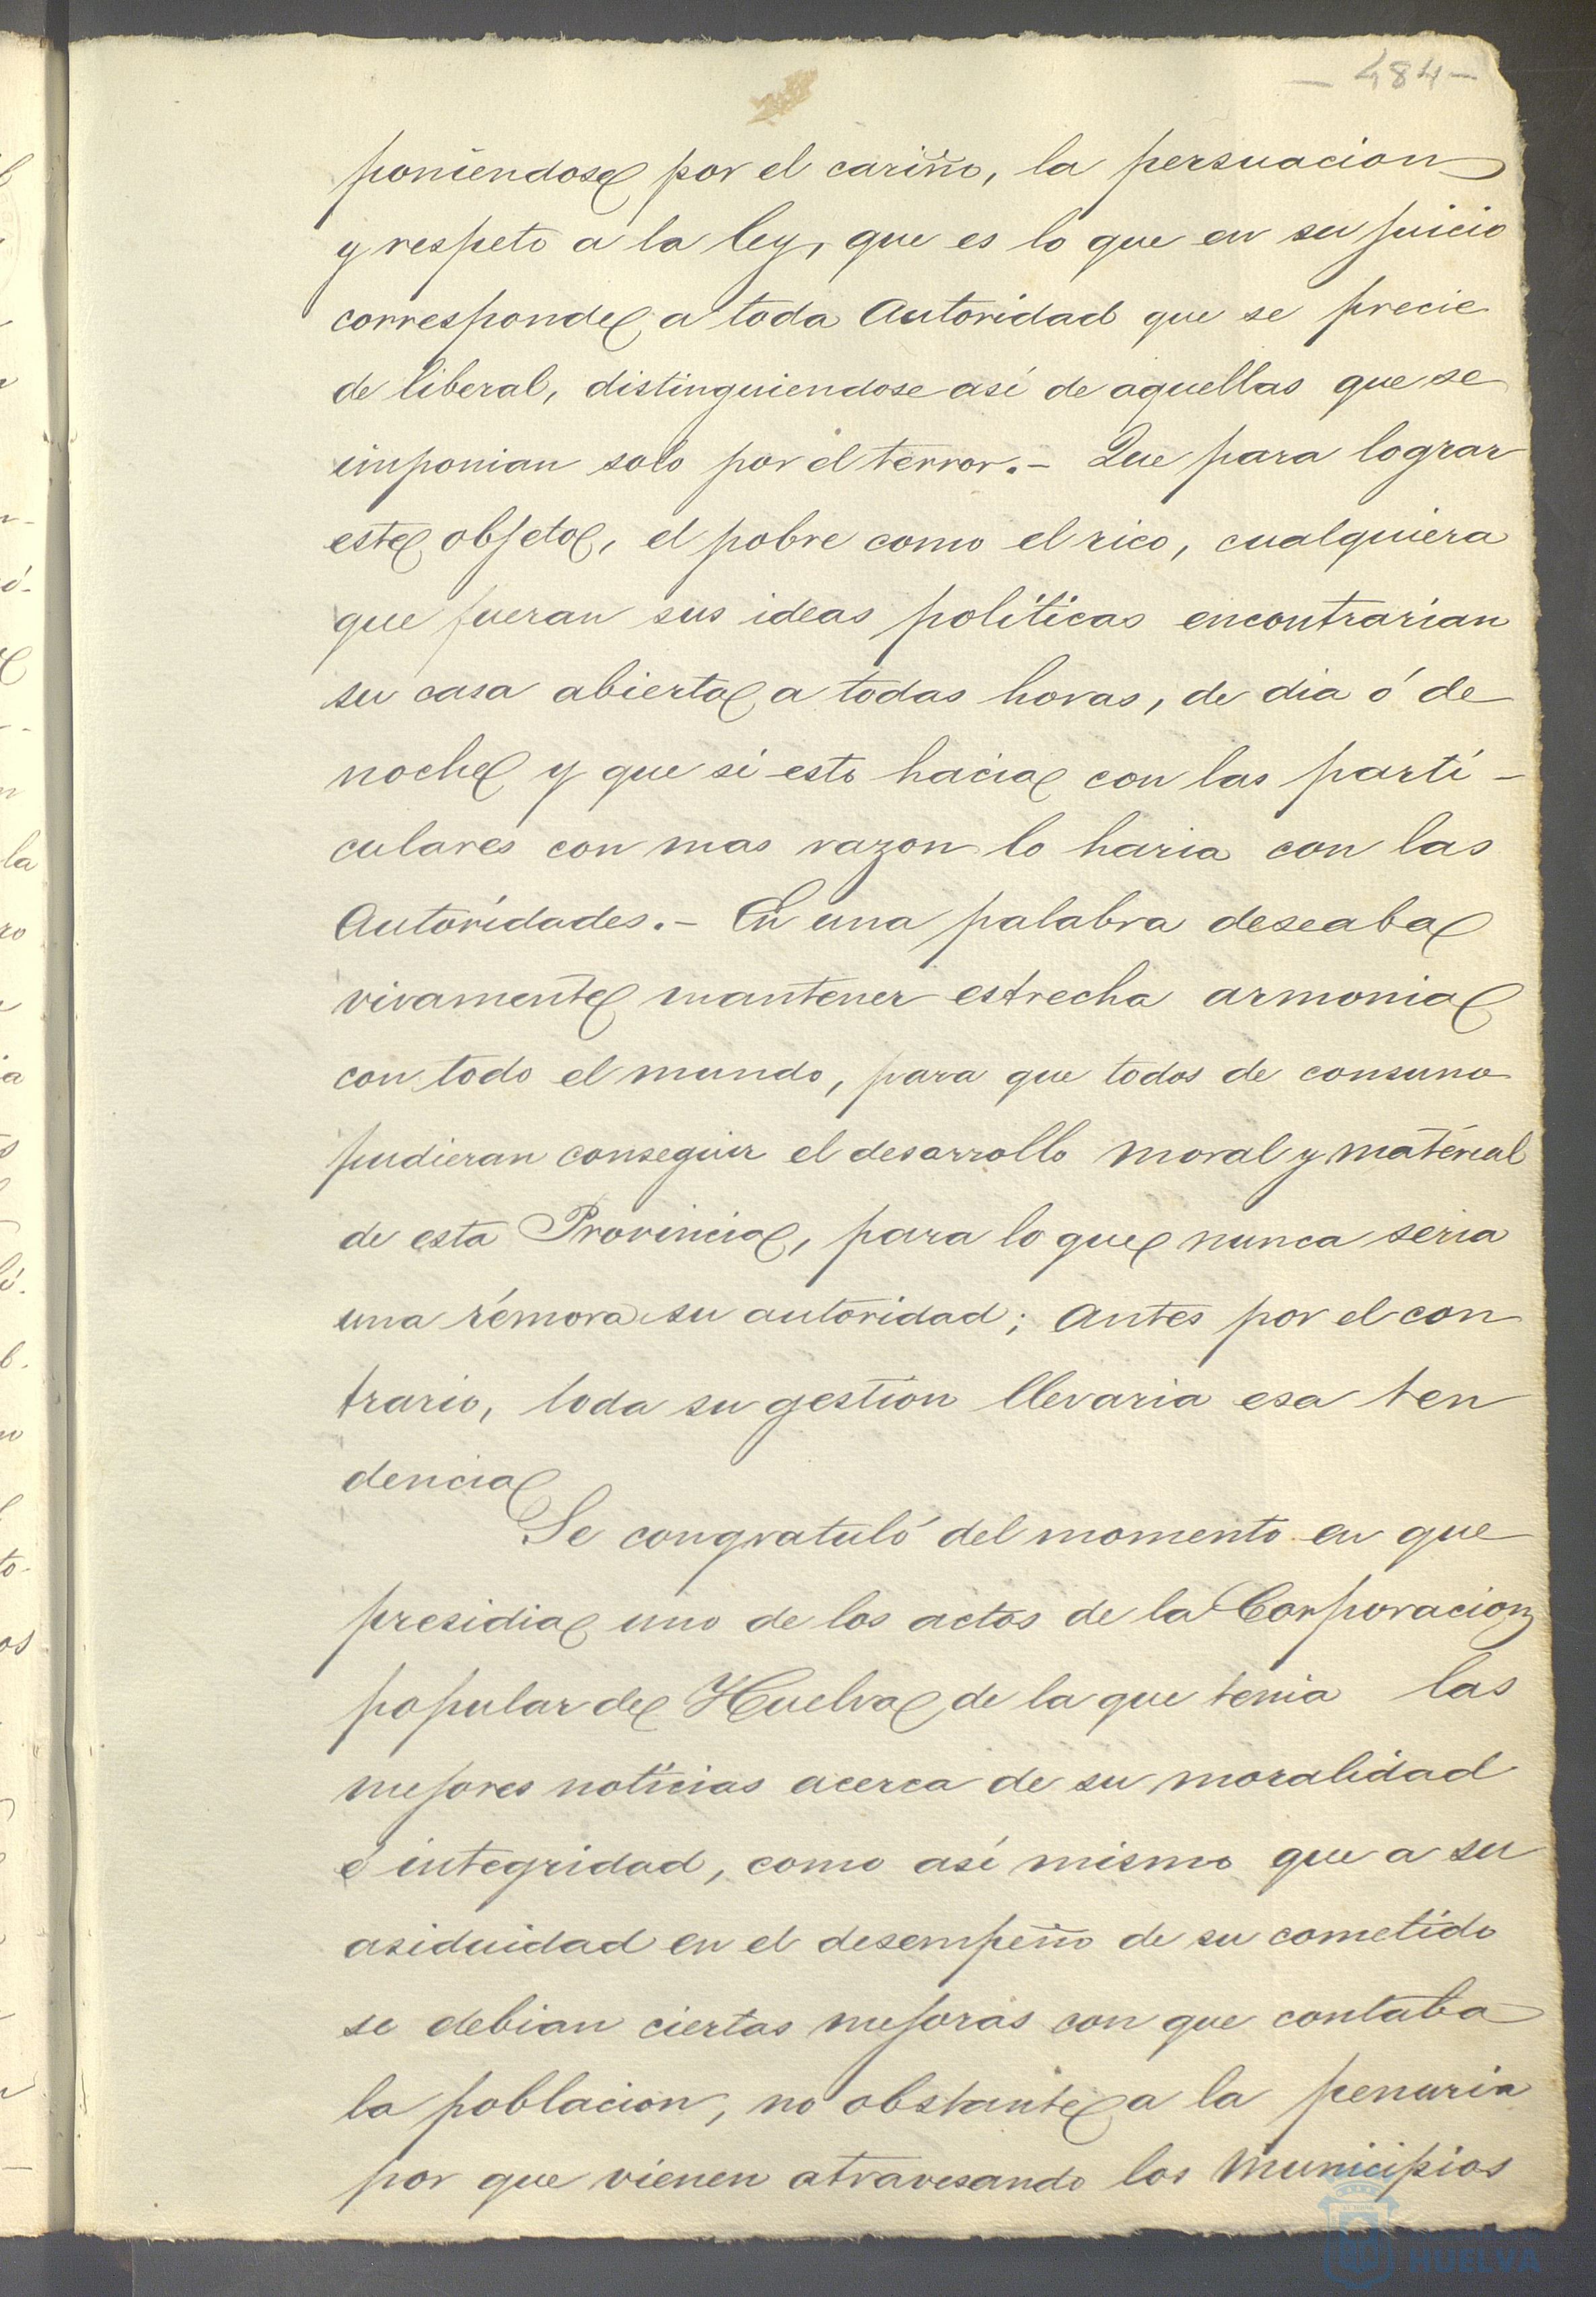 - 484 -
poniendose por el cariño, la persuacion
y respeto a la ley, que es lo que en su juicio
corresponde a toda Autoridad que se precie
de liberal, distinguiendose así de aquellas que se
imponian solo por el terror.- Que para lograr
este objeto, el pobre como el rico, cualquiera
que fueran sus ideas políticas encontrarian
su casa abierta a todas horas, de dia ó de
noche y que si esto hacia con las parti-
culares con mas razon lo haria con las
Autoridades.- En una palabra deseaba
vivamente mantener estrecha armonia
con todo el mundo, para que todos de consuno
pudieran conseguir el desarrollo moral y material
de esta Provincia, para lo que nunca seria
una rémora su autoridad; antes por el con
trario, toda su gestion llevaria esa ten
dencia
Se congratuló del momento en que
presidia uno de los actos de la Corporacion
popular de Huelva de la que tenia las
mejores noticias acerca de su moralidad
é integridad, como así mismo que a su
asiduidad en el desempeño de su cometido
se debian ciertas mejoras con que contaba
la poblacion, no obstante a la penuria
por que vienen atravesando los Municipios
HUELVA